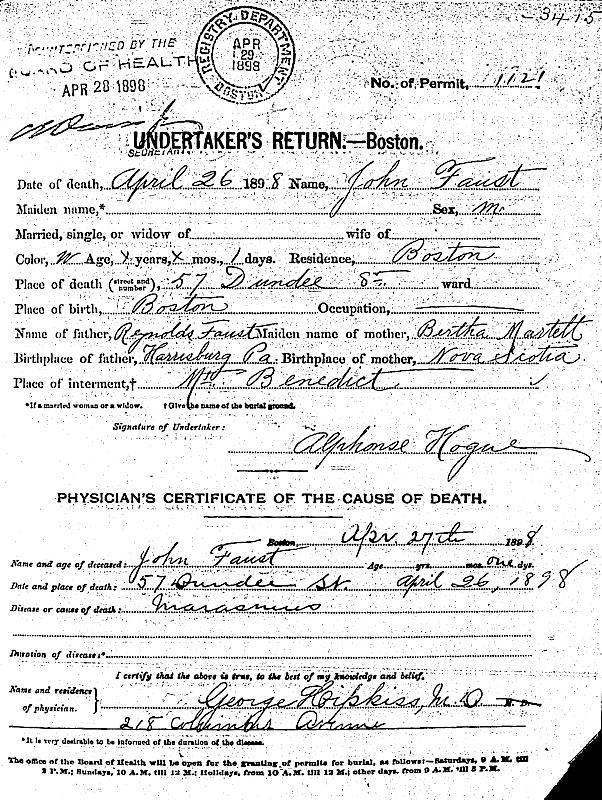 -3415
COUNTERSIGNED BY THE
BOARD OF HEALTH
APR 28 1898
REGISTRY DEPARTMENT
APR
29
1898
BOSTON
No. of Permit, 1121
UNDERTAKER'S RETURN.—Boston.
SECRETARY
Date of death, April 26 1898 Name, John Faust
Maiden name,* Sex, m.
Married, single, or widow of wife of
Color, W Age, x years, x mos., 1 days. Residence, Boston
Place of death (street and number), 57 Dundee St. ward
Place of birth, Boston Occupation,
Name of father, Reynolds Faust Maiden name of mother, Bertha Martell
Birthplace of father, Harrisburg Pa. Birthplace of mother, Nova Scotia.
Place of interment,† Mt. Benedict
*If a married woman or a widow. †Give the name of the burial ground.
Signature of Undertaker:
Alphonse Hogue
PHYSICIAN'S CERTIFICATE OF THE CAUSE OF DEATH.
Boston, Apr. 27th 1898
Name and age of deceased: John Faust Age yrs. mos. one dys.
Date and place of death: 57 Dundee St. April 26, 1898
Disease or cause of death: Marasmus
Duration of disease:*
I certify that the above is true, to the best of my knowledge and belief.
Name and residence of physician. George Hipkiss, M.D. M.D.
218 Columbus Avenue
*It is very desirable to be informed of the duration of the disease.
The office of the Board of Health will be open for the granting of permits for burial, as follows:—Saturdays, 9 A.M. till
2 P.M.; Sundays, 10 A.M. till 12 M.; Holidays, from 10 A.M. till 12 M.; other days, from 9 A.M. till 5 P.M.